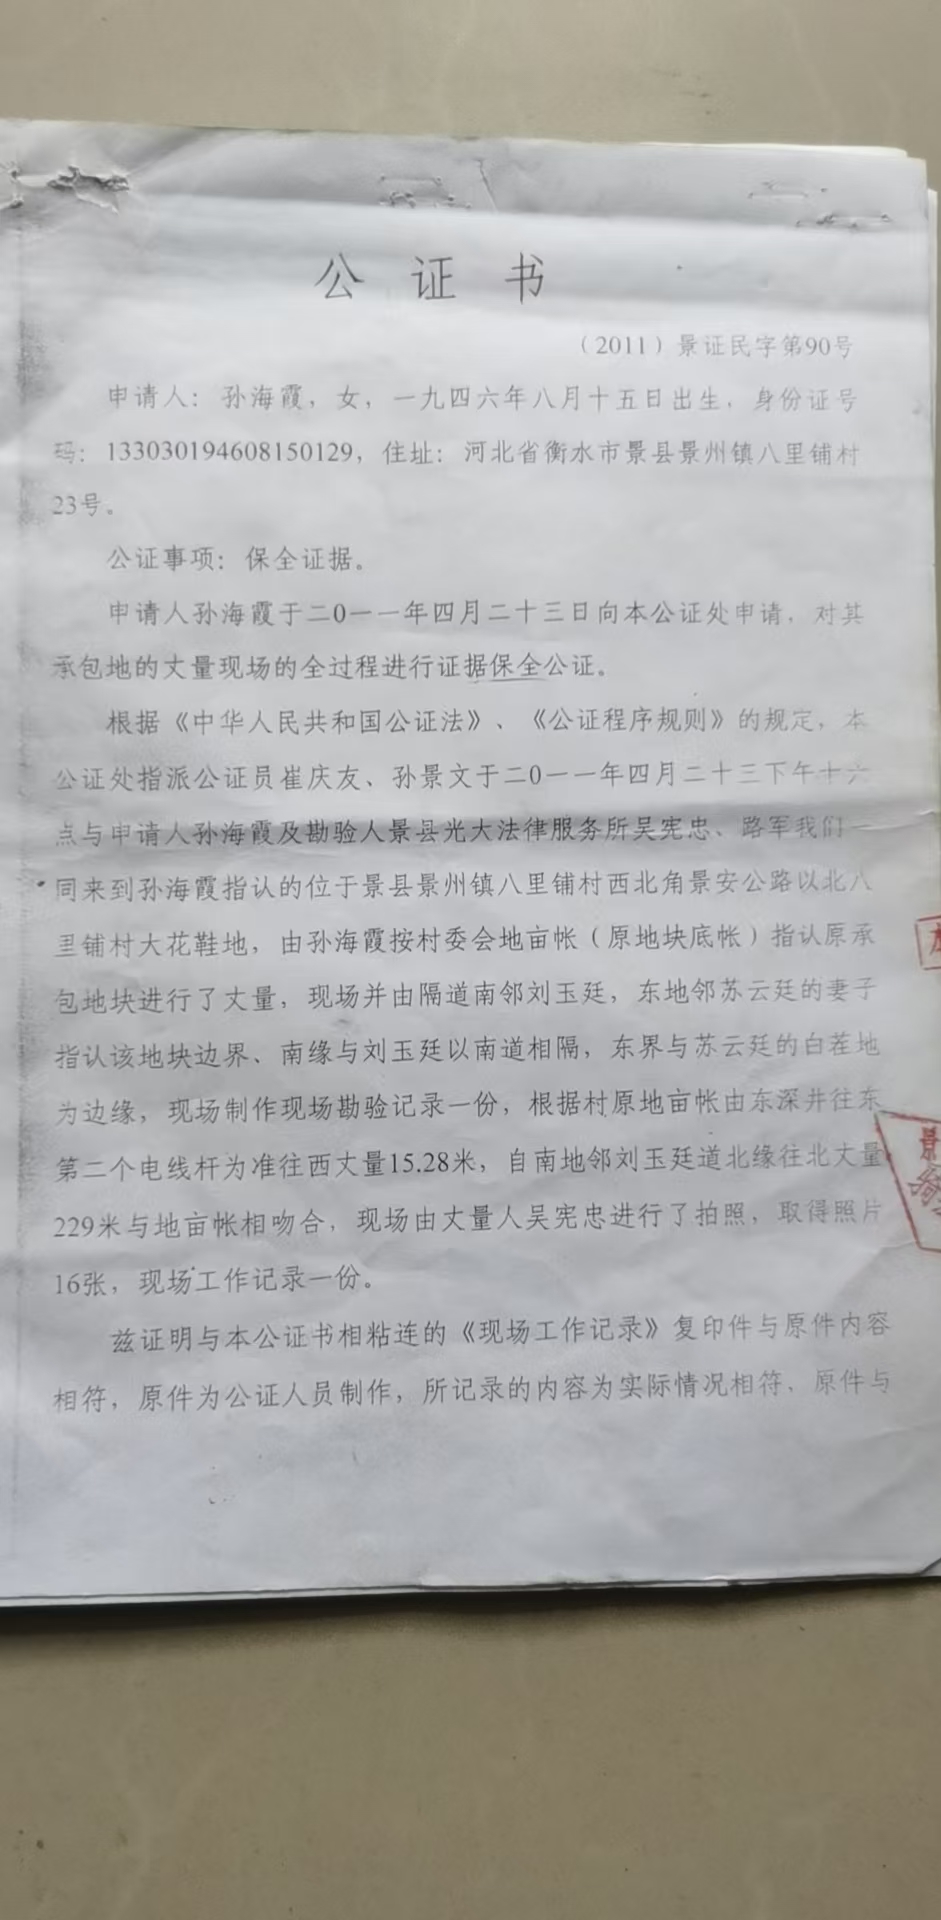 公证书
（2011）景证民字第90号
申请人：孙海霞，女，一九四六年八月十五日出生，身份证号
码：133030194608150129，住址：河北省衡水市景县景州镇八里铺村
23号。
公证事项：保全证据。
申请人孙海霞于二0一一年四月二十三日向本公证处申请，对其
承包地的丈量现场的全过程进行证据保全公证。
根据《中华人民共和国公证法》、《公证程序规则》的规定，本
公证处指派公证员崔庆友、孙景文于二0一一年四月二十三下午十六
点与申请人孙海霞及勘验人景县光大法律服务所吴宪忠、路军我们一
同来到孙海霞指认的位于景县景州镇八里铺村西北角景安公路以北八
里铺村大花鞋地，由孙海霞按村委会地亩帐（原地块底帐）指认原承
包地块进行了丈量，现场并由隔道南邻刘玉廷，东地邻苏云廷的妻子
指认该地块边界、南缘与刘玉廷以南道相隔，东界与苏云廷的白茬地
为边缘，现场制作现场勘验记录一份，根据村原地亩帐由东深井往东
第二个电线杆为准往西丈量15.28米，自南地邻刘玉廷道北缘往北丈量
229米与地亩帐相吻合，现场由丈量人吴宪忠进行了拍照，取得照片
16张，现场工作记录一份。
兹证明与本公证书相粘连的《现场工作记录》复印件与原件内容
相符，原件为公证人员制作，所记录的内容为实际情况相符，原件与
景